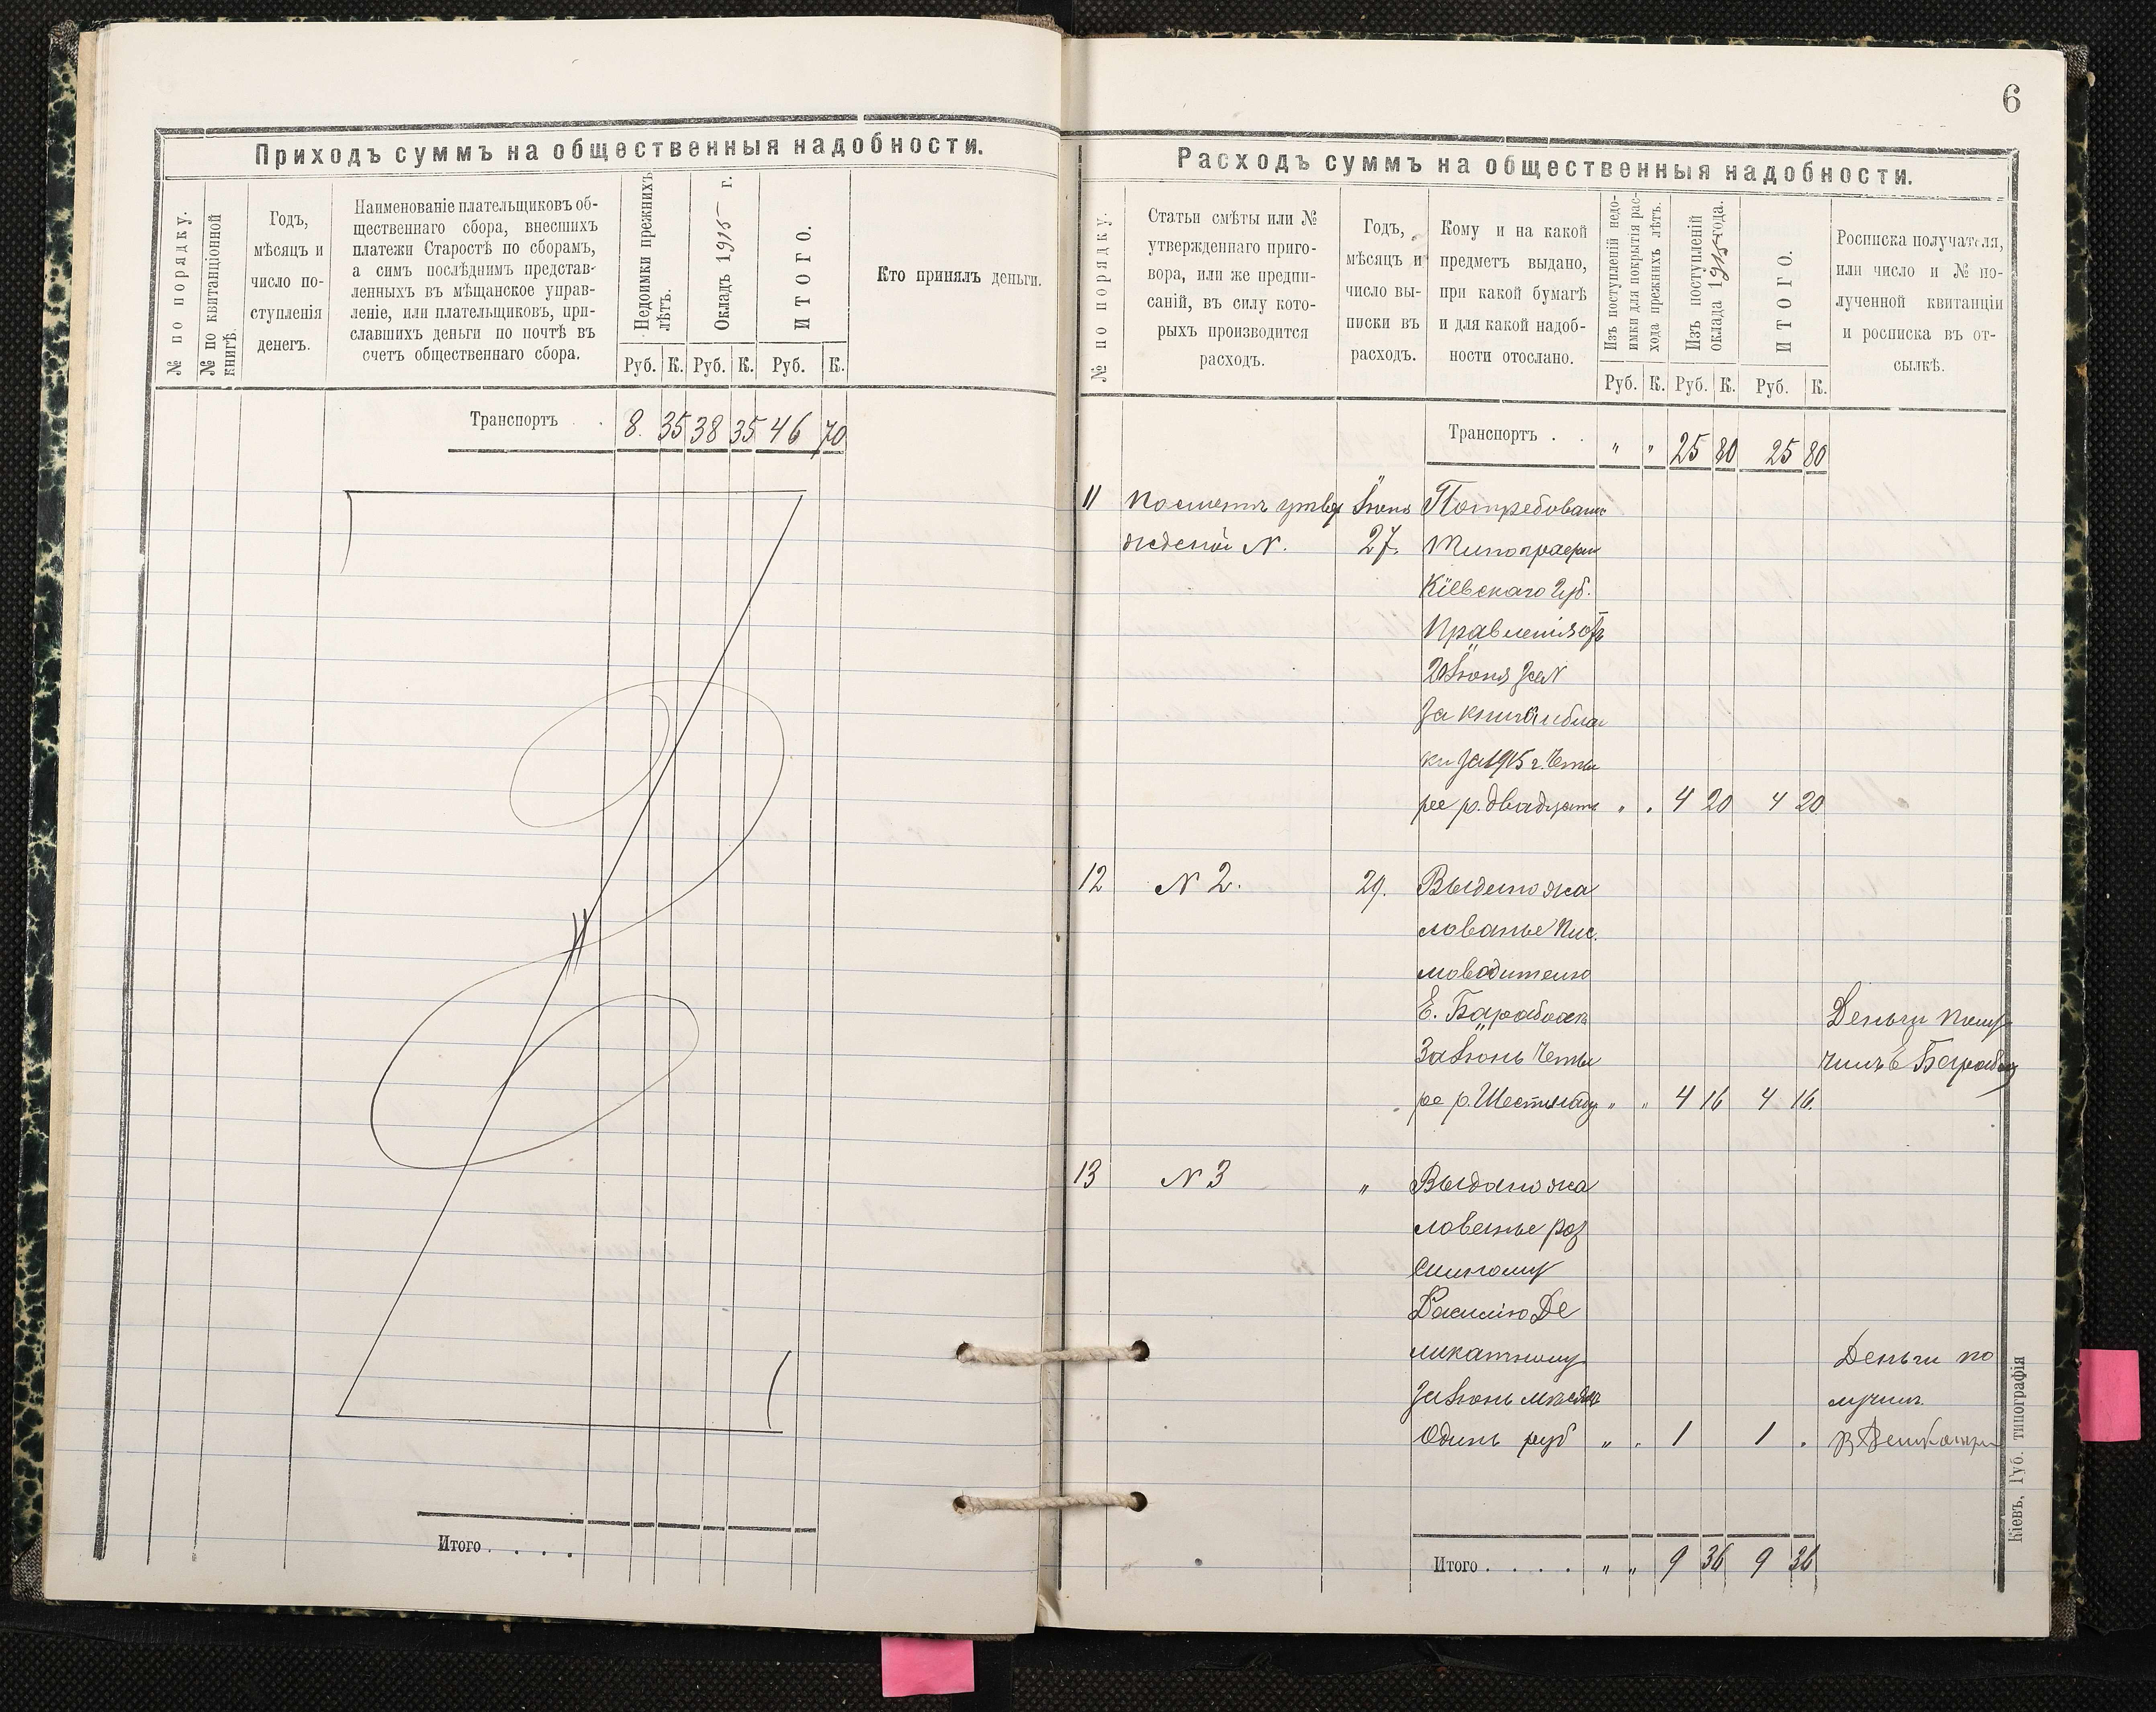 6
Приходъ суммъ на общественныя надобности.
№ по порядку.
№ по квитанціонной
книгѣ.
Годъ,
мѣсяцъ и
число по-
ступленія
денегъ.
Наименованіе плательщиковъ об-
щественнаго сбора, внесшихъ
платежи Старостѣ по сборамъ,
а симъ послѣднимъ представ-
ленныхъ въ мѣщанское управ-
леніе, или плательщиковъ, при-
славшихъ деньги по почтѣ въ
счетъ общественнаго сбора.
Недоимки прежнихъ
лѣтъ.
Окладъ 1915 г.
ИТОГО.
Руб. К. Руб. К. Руб. К.
Кто принялъ деньги.
Транспортъ . . 8. 35 38 35 46 70
Итого . . . .
Расходъ суммъ на общественныя надобности.
№ по порядку.
Статьи смѣты или №
утвержденнаго приго-
вора, или же предпи-
саній, въ силу кото-
рыхъ производится
расходъ.
Годъ,
мѣсяцъ и
число вы-
писки въ
расходъ.
Кому и на какой
предметъ выдано,
при какой бумагѣ
и для какой надоб-
ности отослано.
Изъ поступленій недо-
имки для покрытія рас-
хода прежнихъ лѣтъ.
Изъ поступленій
оклада 1915 года.
ИТОГО.
Руб. К. Руб. К. Руб. К.
Росписка получателя,
или число и № по-
лученной квитанціи
и росписка въ от-
сылкѣ.
Транспортъ . . " " 25 80 25 80
11 По смете утвер Іюня По требован
жденой N. 27. Типографіи
Кіевскаго Губ.
Правленія отъ
20 Іюня за N
За книги и блан
ки за 1915 г. Четы
ре р. двадцать " . 4 20 4 20
12 N 2. 29. Выдано жа
лованье Пис.
моводителю
Е. Барабаш
За Іюнь Четы " Деньги полу
чилъ Е Барабаш
ре р. Шестнадц " " 4 16 4 16.
13 N 3 " Выдано жа
лованье раз
сыльному
Василію Де
ликатному Деньги по
За Іюнь месяцъ лучилъ
Одинъ руб " . 1 1 . В Деликатн
Итого . . . . " " 9 36 9 36
Кіевъ, Губ. типографія